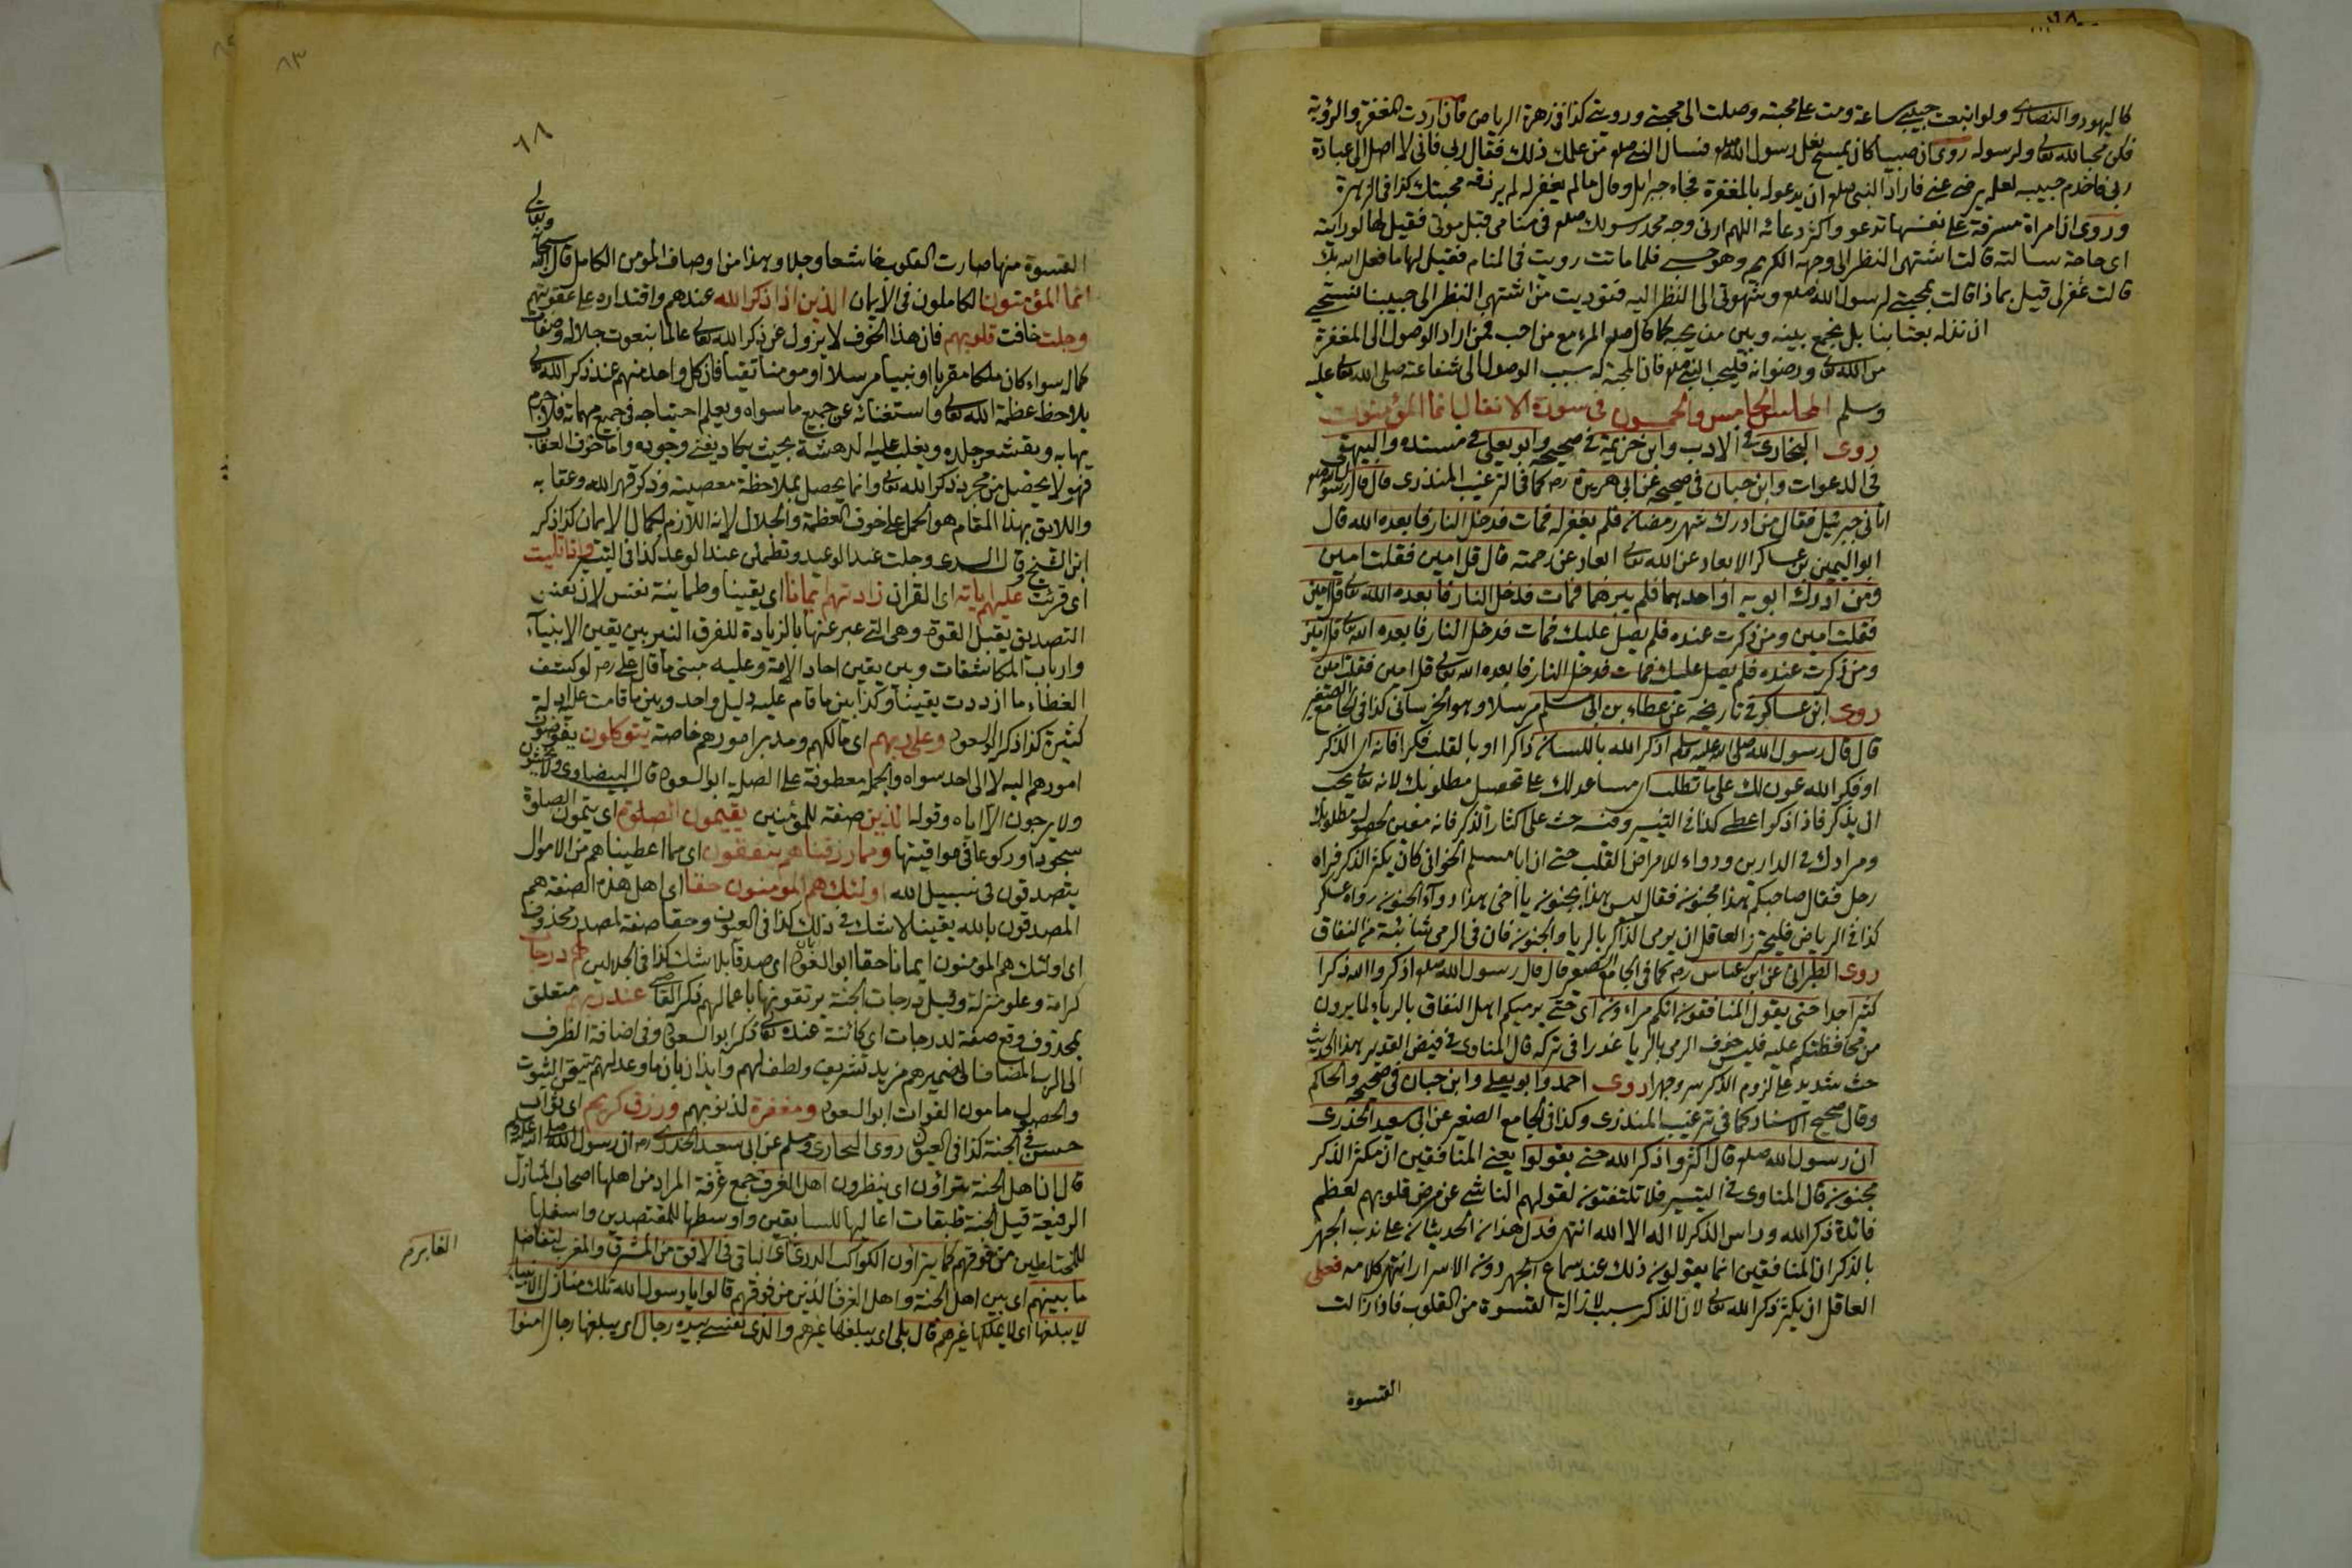 كاليهود والنصارى ولو اتبعت حبيبى ساعة ومت على محبته وصلت الى محبتى ورويتى كذا فى زهرة الرياض فان اردت المغفرة والرؤية
فكن محبا لله تعالى ولرسوله روى ان صبيا كان يمسح نعل رسول الله صلعم فسأل النبى صلعم من علمك ذلك فقال ربى فانى لا اصل الى عبادة
ربى فاخدم حبيبه لعله يرضى عنى فاراد النبى صلعم ان يدعو له بالمغفرة فجاء جبرايل وقال ما لم يغفر له لم يرزقه محبتك كذا فى الزهرة
وروى ان امراة مسرفة على نفسها تدعو واكثر دعائه اللهم ارنى وجه محمد رسولك صلعم فى منامى قبل موتى فقيل لها لو رايته
اى حاجة سالته قالت اشتهى النظر الى وجهه الكريم وهو حسبى فلما ماتت رويت فى المنام فقيل لها ما فعل الله بك
قالت غفر لى قيل بماذا قالت بمحبتى لرسول الله صلعم وشهوتى الى النظر اليه فنوديت من اشتهى النظر الى حبيبنا نستحيى
ان نذله بعتابنا بل نجمع بينه وبين من يحبه كما قال صلعم المرء مع من احب فمن اراد الوصول الى المغفرة
من الله تعالى ورضوانه فليحب النبى صلعم فان المحبة له سبب الوصول الى شفاعته صلى الله تعالى عليه
وسلم المجلس الخامس والخمسون فى سورة الانفال انما المؤمنون
روى البخارى فى الادب وابن خزيمة فى صحيحه وابو يعلى فى مسنده والبيهقى
فى الدعوات وابن حبان فى صحيحه عن ابى هريرة رضه كما فى الترغيب المنذرى قال قال رسول الله صلعم
اتانى جبرئيل فقال من ادرك شهر رمضان فلم يغفر له فمات فدخل النار فابعده الله قال
ابو اليمين بن عساكر الابعاد عن الله تعالى ابعاد عن رحمته قال قل امين فقلت امين
ومن ادرك ابويه او احدهما فلم يبرهما فمات فدخل النار فابعده الله تعالى قل امين
فقلت امين ومن ذكرت عنده فلم يصل عليك فمات فدخل النار فابعده الله تعالى قل امين
ومن ذكرت عنده فلم يصل عليك فمات فدخل النار فابعده الله تعالى قل امين فقلت امين
روى ابن عساكر فى تاريخه عن عطاء بن ابى مسلم مرسلا وهو الخرسانى كذا فى الجامع الصغير
قال قال رسول الله صلى الله عليه وسلم اذكر الله باللسان ذاكرا او بالقلب فكرا فانه اى الذكر
او فكر الله عون لك على ما تطلب اى مساعد لك على تحصيل مطلوبك لانه تعالى يحب
ان يذكر فاذا ذكر اعطى كذا فى التيسير وفيه حث على اكثار الذكر فانه معين لحصول مطلوبك
ومرادك فى الدارين ودواء للامراض القلب حتى ان ابا مسلم الخوانى كان يكثر الذكر فراه
رجل فقال صاحبكم هذا مجنون فقال ليس هذا بجنون يا اخى هذا دواء الجنون رواه عساكر
كذا فى الرياض فليحترز العاقل ان يرمى الذاكر بالريا والجنون فان فى الرمى شائبة من النفاق
روى الطبرانى عن ابن عباس رضه كما فى الجامع الصغير قال قال رسول الله صلعم اذكروا الله ذكرا
كثيرا جدا حتى يقول المنافقون انكم مراءون اى حتى يرميكم اهل النفاق بالرياء لما يرون
من محافظتكم عليه فليس خوف الرمى بالريا عذرا فى تركه قال المناوى فى فيض القدير بهذا الحديث
حث شديد على لزوم الذكر سر وجهرا روى احمد وابو يعلى وابن حبان فى صحيحه والحاكم
وقال صحيح الاسناد كما فى ترغيب المنذرى وكذا فى الجامع الصغير عن ابى سعيد الخذرى
ان رسول الله صلعم قال اكثروا ذكر الله حتى يقولوا يعنى المنافقين ان مكثر الذكر
مجنون قال المناوى فى التيسير فلا تلتفتون لقولهم الناشى عن مرض قلوبهم لعظم
فائدة ذكر الله وراس الذكر لا اله الا الله انتهى فدل هذان الحديثان على ندب الجهر
بالذكر ان المنافقين انما يقولون ذلك عند سماع الجهر دون الاسرار انتهى كلامه فعلى
العاقل ان يكثر ذكر الله تعالى لان الذكر سبب لازالة القسوة من القلوب فاذا زالت
القسوة
٦٨
القسوة منها صارت القلوب خاشعا وجلا وهذا من اوصاف المؤمن الكامل قال الله سبحانه وتعالى
انما المؤمنون الكاملون فى الايمان الذين اذا ذكر الله عندهم واقتداره على عقوبتهم
وجلت خافت قلوبهم فان هذا الخوف لا يزول عن ذكر الله تعالى عالما بنعوت جلاله وصفات
كماله سواء كان ملكا مقربا او نبيا مرسلا او مومنا تقيا فان كل واحد منهم عند ذكر الله تعالى
يلاحظ عظمة الله تعالى واستغنائه عن جميع ما سواه ويعلم احتياجه فى جميع مهماته فلا جرم
يهابه ويقشعر جلده ويغلب عليه الدهشة بحيث يكاد يفنى وجوده واما خوف العقاب
فهو لا يحصل من مجرد ذكر الله تعالى وانما يحصل بملاحظة معصيته وذكر قهر الله وعقابه
واللايق بهذا المقام هو الحمل على خوف العظمة والجلال لانه اللازم لكمال الايمان كذا ذكره
ابن الشيخ وقال السدى وجلت عند الوعيد وتطمئن عند الوعد كذا فى التيسير واذا تليت
اى قرئت عليهم اياته اى القران زادتهم ايمانا اى يقينا وطمانينة نفس لان نفس
التصديق يقبل القوة وهى التى عبر عنها بالزيادة للفرق النير بين يقين الانبياء
وارباب المكاشفات وبين يقين احاد الامة وعليه مبنى ما قال على رضه لو كشف
الغطاء ما ازددت يقينا وكذا بين ما قام عليه دليل واحد وبين ما قامت عليه ادلة
كثيرة كذا ذكر ابو السعود وعلى ربهم اى مالكهم ومدبر امورهم خاصة يتوكلون يفوضون
امورهم اليه لا الى احد سواه والجملة معطوفة على الصلة ابو السعود قال البيضاوى ولا يخشون
ولا يرجون الا اياه وقوله الذين صفة للمؤمنين يقيمون الصلوة اى يتمون الصلوة
سجودا وركوعا فى مواقيتها ومما رزقناهم ينفقون اى مما اعطيناهم من الاموال
يتصدقون فى سبيل الله اولئك هم المؤمنون حقا اى اهل هذه الصفة هم
المصدقون بالله يقينا لا شك فى ذلك كذا فى العيون وحقا صفة لمصدر محذوف
اى اولئك هم المؤمنون ايمانا حقا ابو السعود اى صدقا بلا شك كذا فى الجلالين لهم درجات
كرامة وعلو منزلة وقيل درجات الجنة يرتقونها باعمالهم ذكر القاضى عند ربهم متعلق
بمحذوف وقع صفة لدرجات اى كائنة عنده تعالى ذكر ابو السعود وفى اضافة الظرف
الى الرب المضاف الى ضميرهم مزيد تشريف ولطف لهم وايذان بان ما وعد لهم متيقن الثبوت
والحصول مامون الفوات ابو السعود ومغفرة لذنوبهم ورزق كريم اى ثواب
حسن فى الجنة كذا فى العيون روى البخارى ومسلم عن ابى سعيد الخدرى رضه ان رسول الله صلى الله عليه وسلم
قال ان اهل الجنة يتراؤن اى ينظرون اهل الغرف جمع غرفة المراد من اهلها اصحاب المنازل
الرفيعة قيل الجنة طبقات اعاليها للسابقين واوسطها للمقتصدين واسفلها
للمختلطين من فوقهم كما يتراؤن الكواكب الدرى اى الباقى فى الافق من المشرق والمغرب لتفاضل
الغابر م
ما بينهم اى بين اهل الجنة واهل الغرف الذين من فوقهم قالوا يا رسول الله تلك منازل الانبياء
لا يبلغها اى لا يملكها غيرهم قال بلى اى يبلغها غيرهم والذى نفسى بيده رجال اى يبلغها رجال امنوا